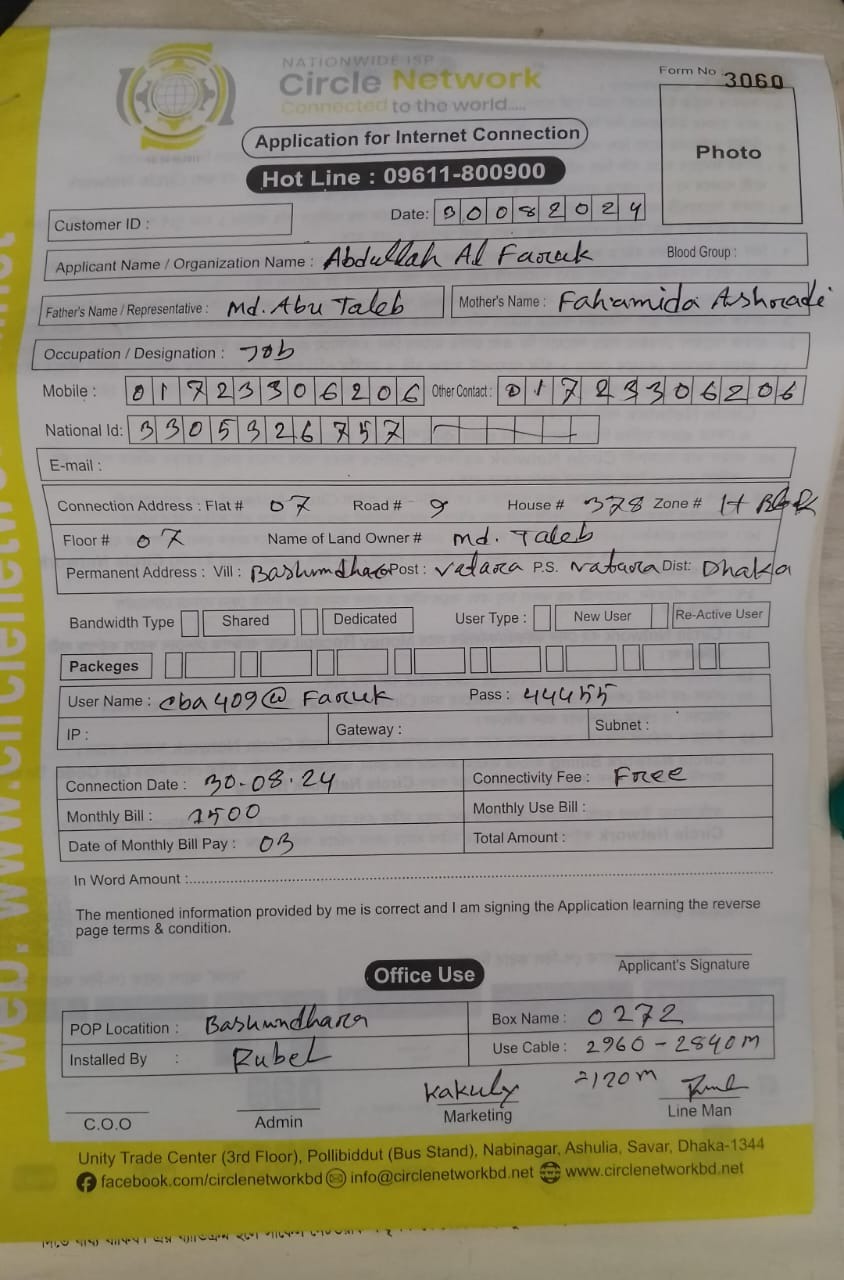 NATIONWIDE ISP
Circle Network
Connected to the world.....
Form No : 3060
Photo
Application for Internet Connection
Hot Line : 09611-800900
Customer ID :
Date: 30082024
Applicant Name / Organization Name : Abdullah Al Faruk Blood Group :
Father's Name / Representative : Md. Abu Taleb Mother's Name : Fahamida Ashrade
Occupation / Designation : Job
Mobile : 01723306206 Other Contact : 01723306206
National Id: 3305326757
E-mail :
Connection Address : Flat # 07 Road # 9 House # 378 Zone # H Block
Floor # 07 Name of Land Owner # md. Taleb
Permanent Address : Vill : Bashundhara Post : vatara P.S. vatara Dist: Dhaka
Bandwidth Type Shared Dedicated User Type : New User Re-Active User
Packeges
User Name : cba409@Faruk Pass : 44455
IP : Gateway : Subnet :
Connection Date : 30.08.24 Connectivity Fee : Free
Monthly Bill : 1500 Monthly Use Bill :
Date of Monthly Bill Pay : 03 Total Amount :
In Word Amount :
The mentioned information provided by me is correct and I am signing the Application learning the reverse
page terms & condition.
Applicant's Signature
Office Use
POP Locatition : Bashundhara Box Name : 0272
Installed By : Rubel Use Cable : 2960 - 2840m
=120m
Kakuly
C.O.O Admin Marketing Line Man
Unity Trade Center (3rd Floor), Pollibiddut (Bus Stand), Nabinagar, Ashulia, Savar, Dhaka-1344
facebook.com/circlenetworkbd info@circlenetworkbd.net www.circlenetworkbd.net